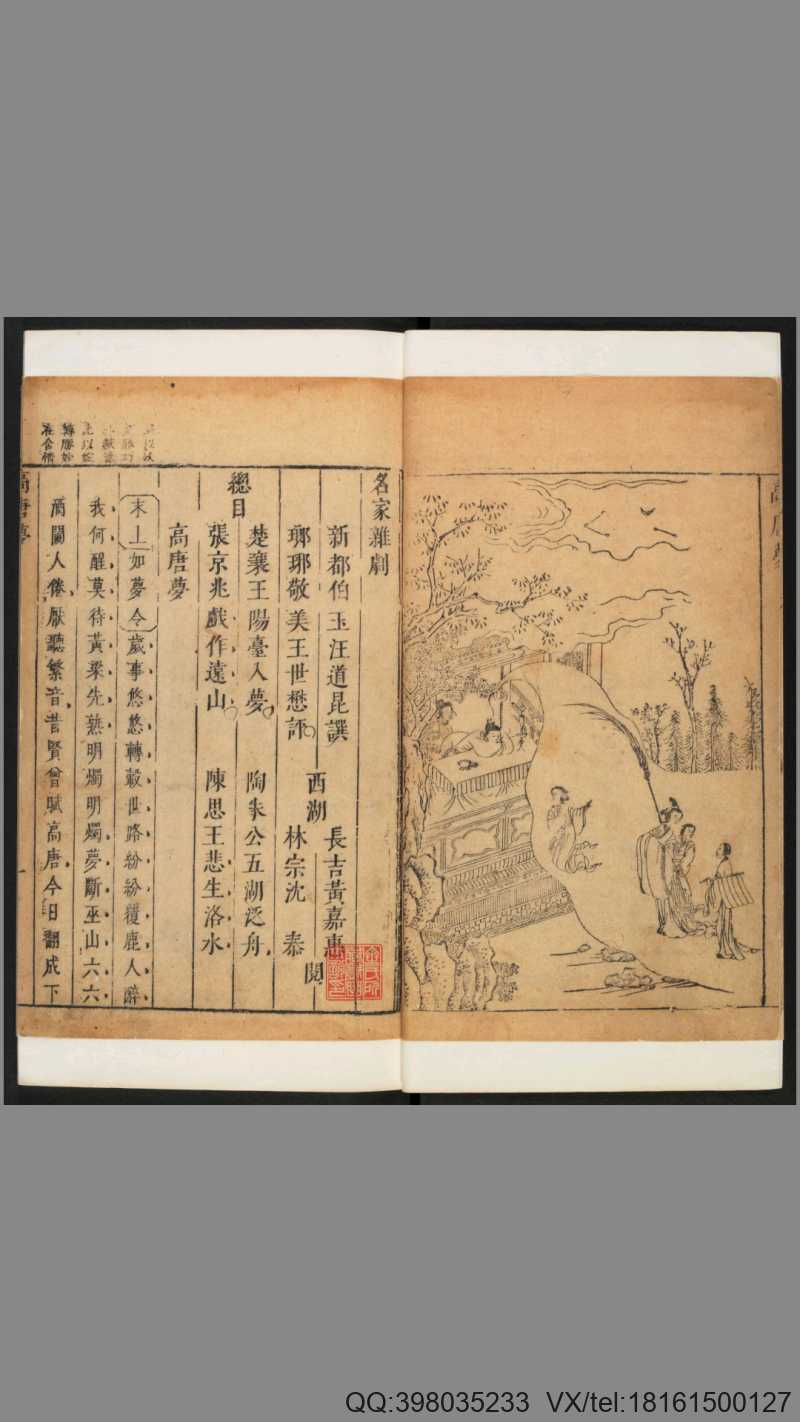 高唐夢
名家雜劇
新都伯玉汪道昆譔
瑯琊敬美王世懋評
西湖
長吉黃嘉惠
林宗沈泰
閱
總目
楚襄王陽臺入夢
陶朱公五湖泛舟
張京兆戲作遠山
陳思王悲生洛水
高唐夢
末上如夢令歲事悠悠轉轂世路紛紛覆鹿人醉
我何醒莫待黃粱先熟明燭明燭夢斷巫山六六
酒闌人倦厭聽繁音昔賢曾賦高唐今日翻成下
高唐夢
QQ:398035233 VX/tel:18161500127